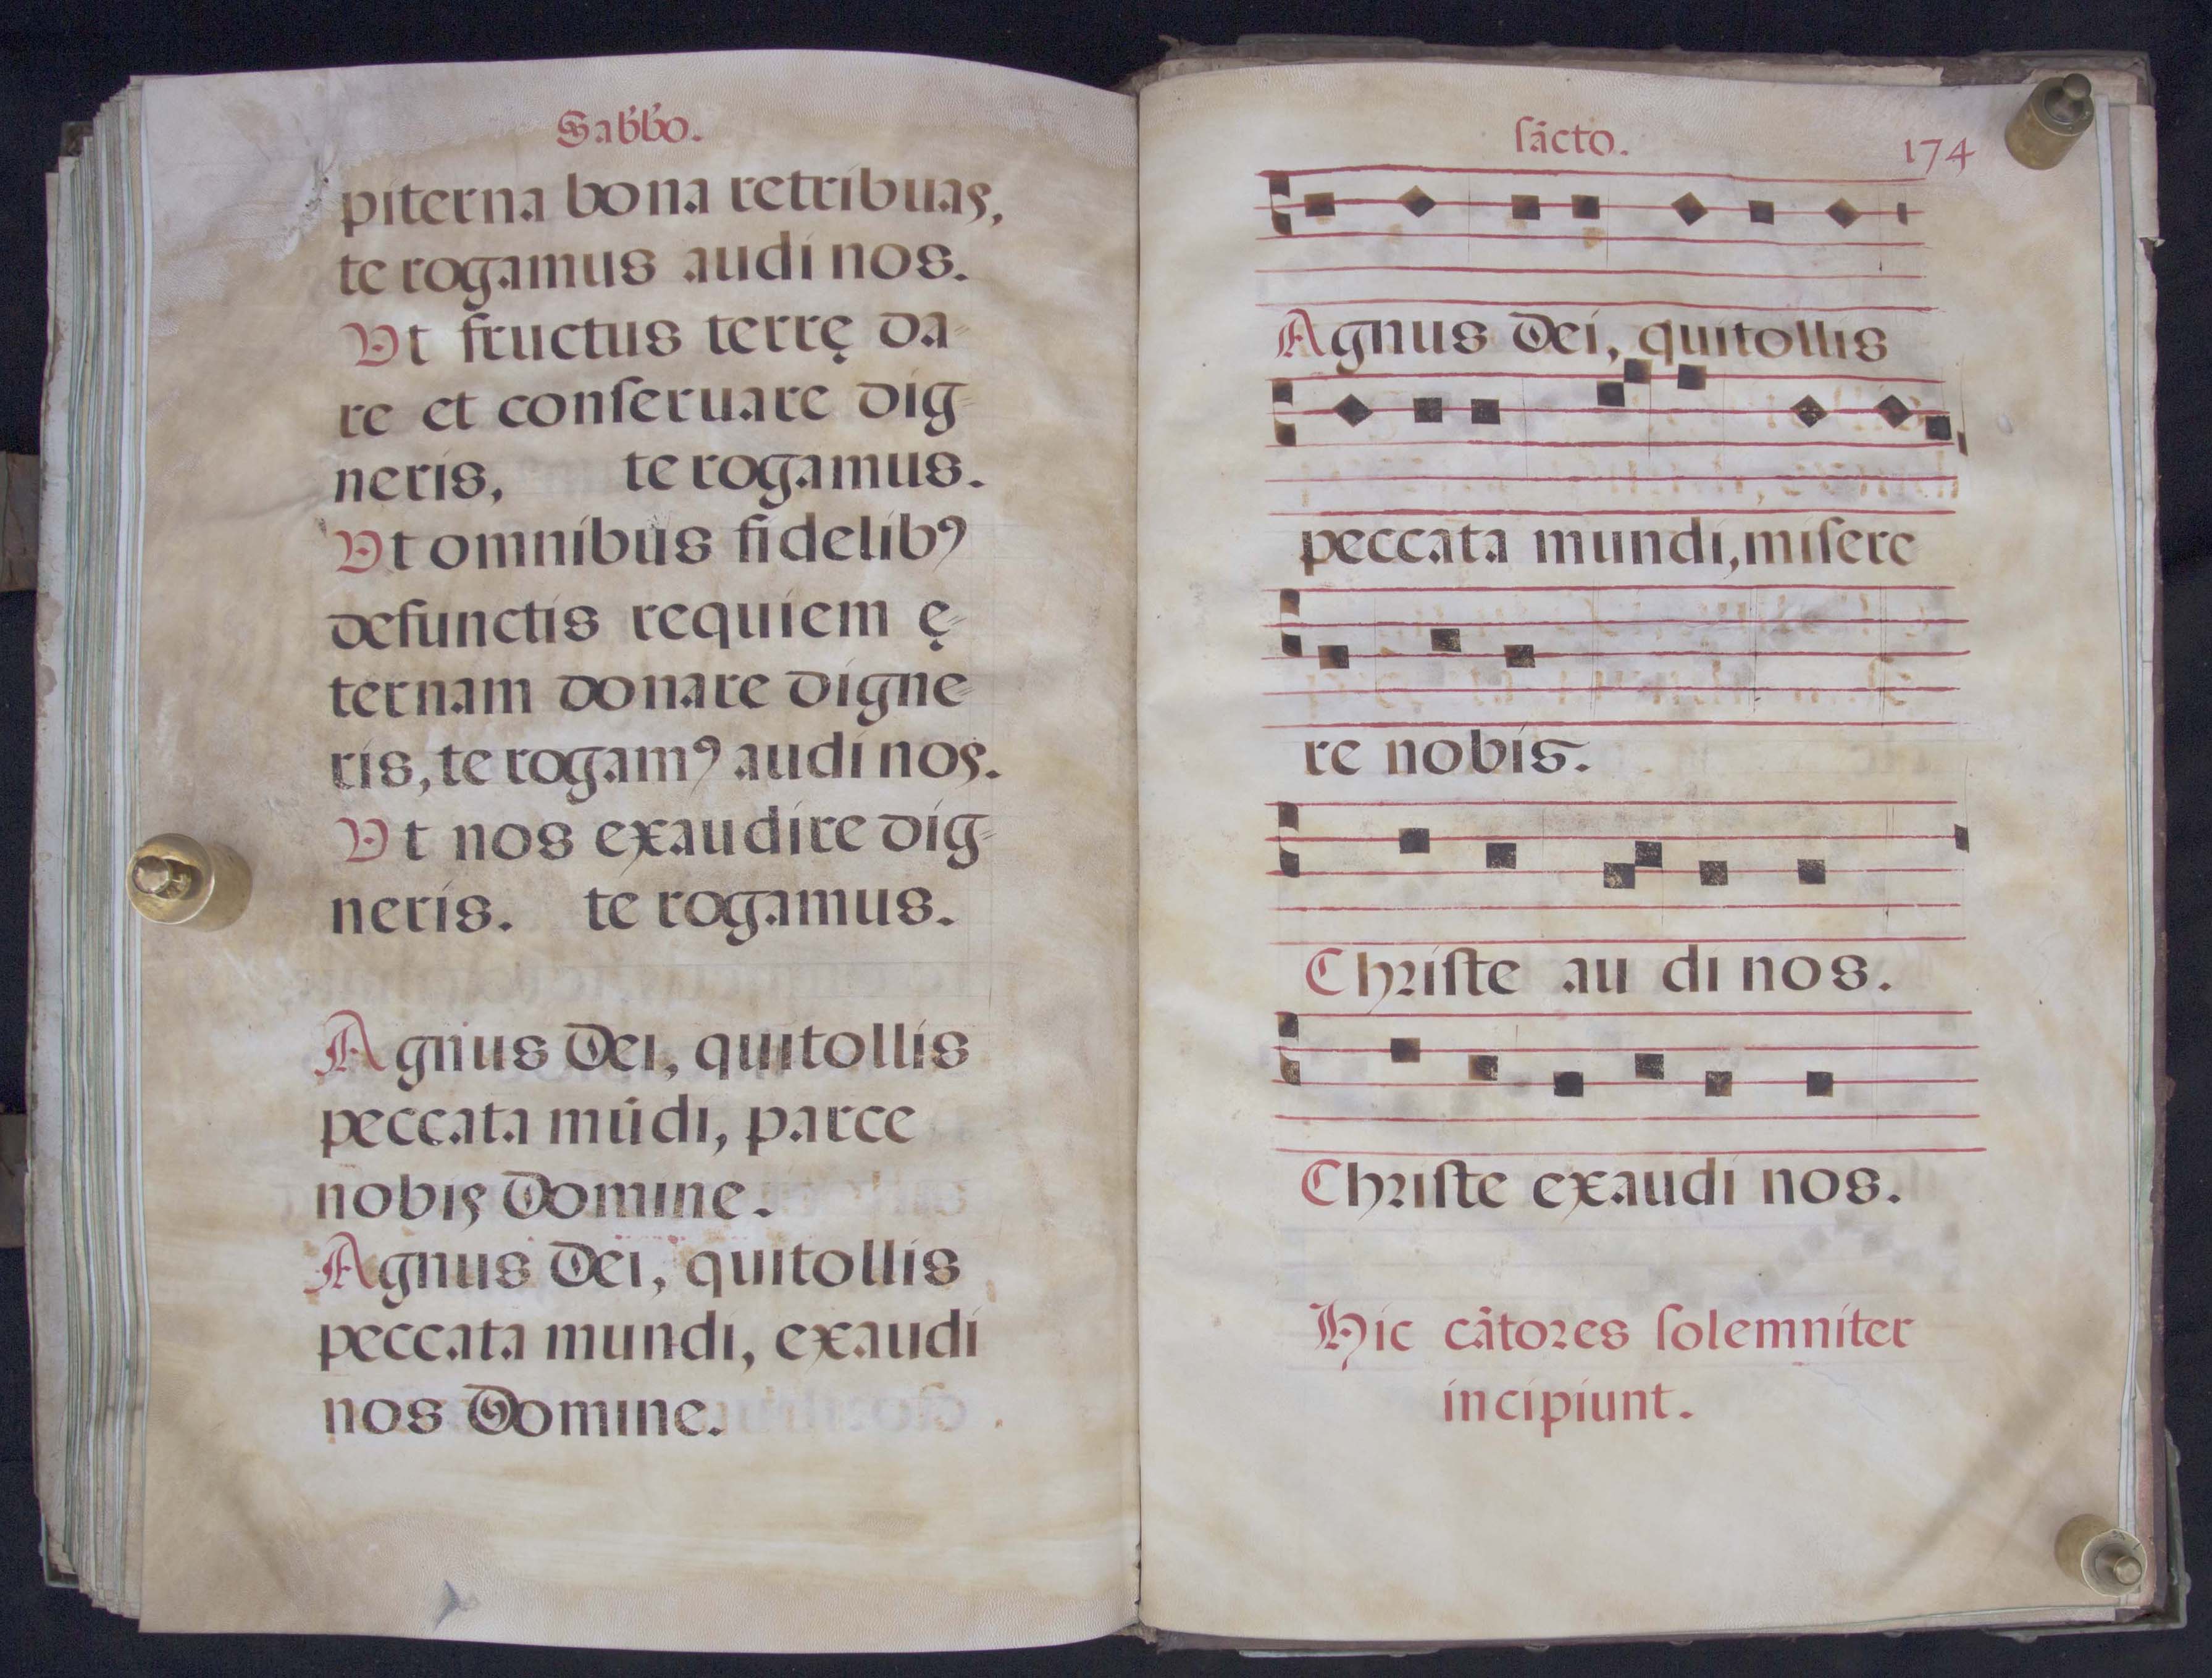 Sab̄b̄o.
piterna bona retribuas,
te rogamus audi nos.
Vt fructus terrę da-
re et conſeruare dig-
neris, te rogamus.
Vt omnibus fidelibꝰ
defunctis requiem ę-
ternam donare digne-
ris, te rogamꝰ audi nos.
Vt nos exaudire dig-
neris. te rogamus.
Agnus Dei, qui tollis
peccata mūdi, parce
nobis Domine.
Agnus Dei, qui tollis
peccata mundi, exaudi
nos Domine.
ſācto. 174
Agnus Dei, qui tollis
peccata mundi, miſere
re nobis.
Chriſte au di nos.
Chriſte exaudi nos.
Hic cātores ſolemniter
incipiunt.